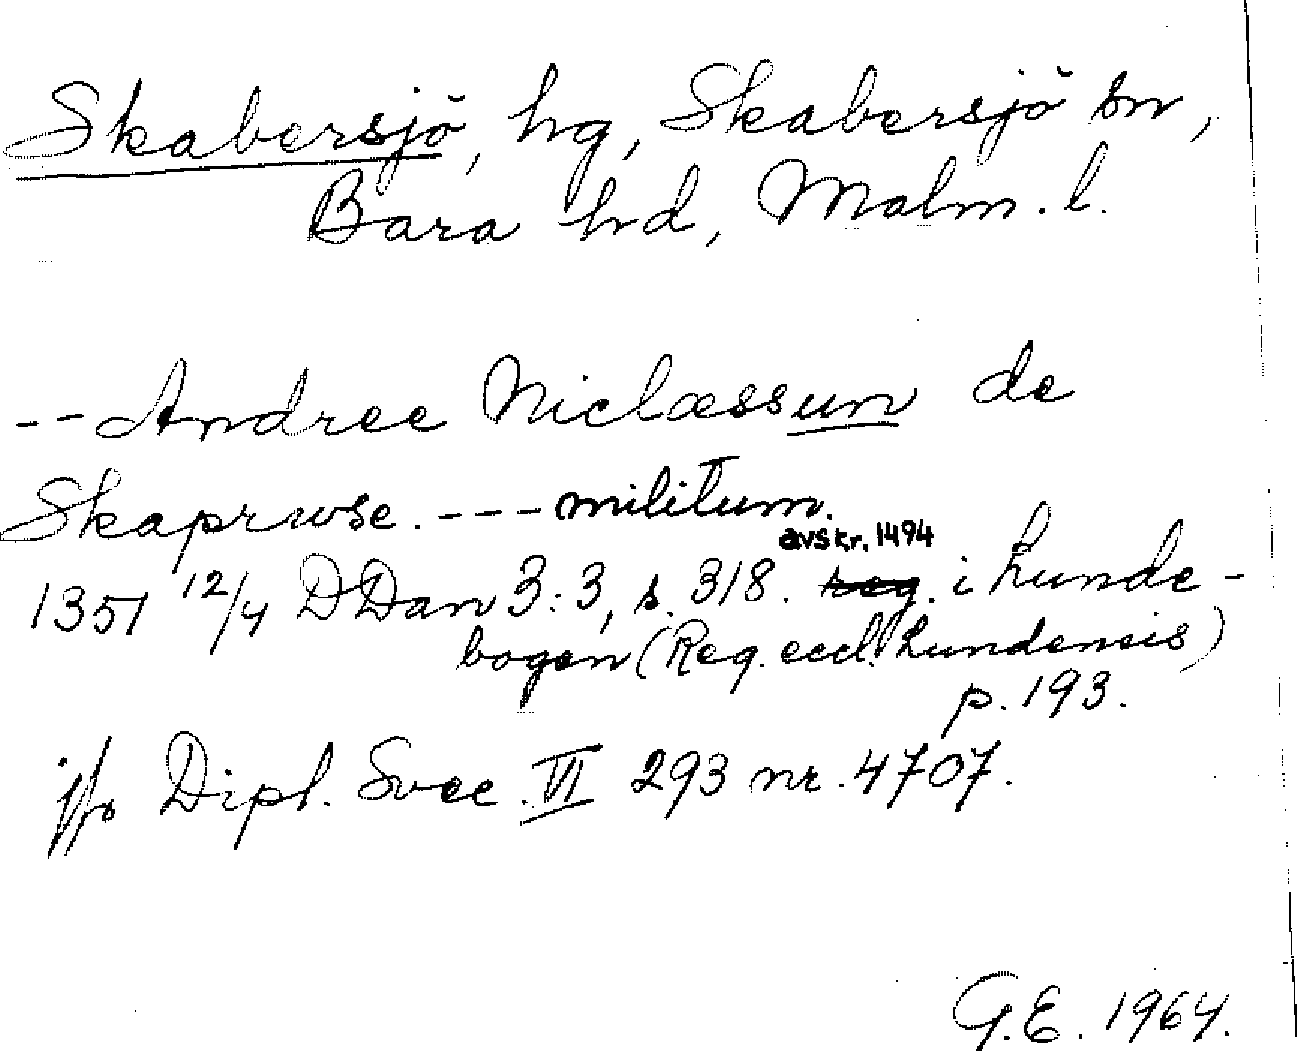 Skabersjö, hg, Skabersjö sn,
Bara hd, Malm. l.
-- Andree Niclæssun de
Skaprwse. --- militum.
avskr. 1494
1351 12/4 DDan 3:3, s. 318. reg. i Lunde-
bogen (Reg. eccl. Lundensis)
p. 193.
jfr Dipl. Svec. VI 293 nr. 4707.
G.E. 1964.